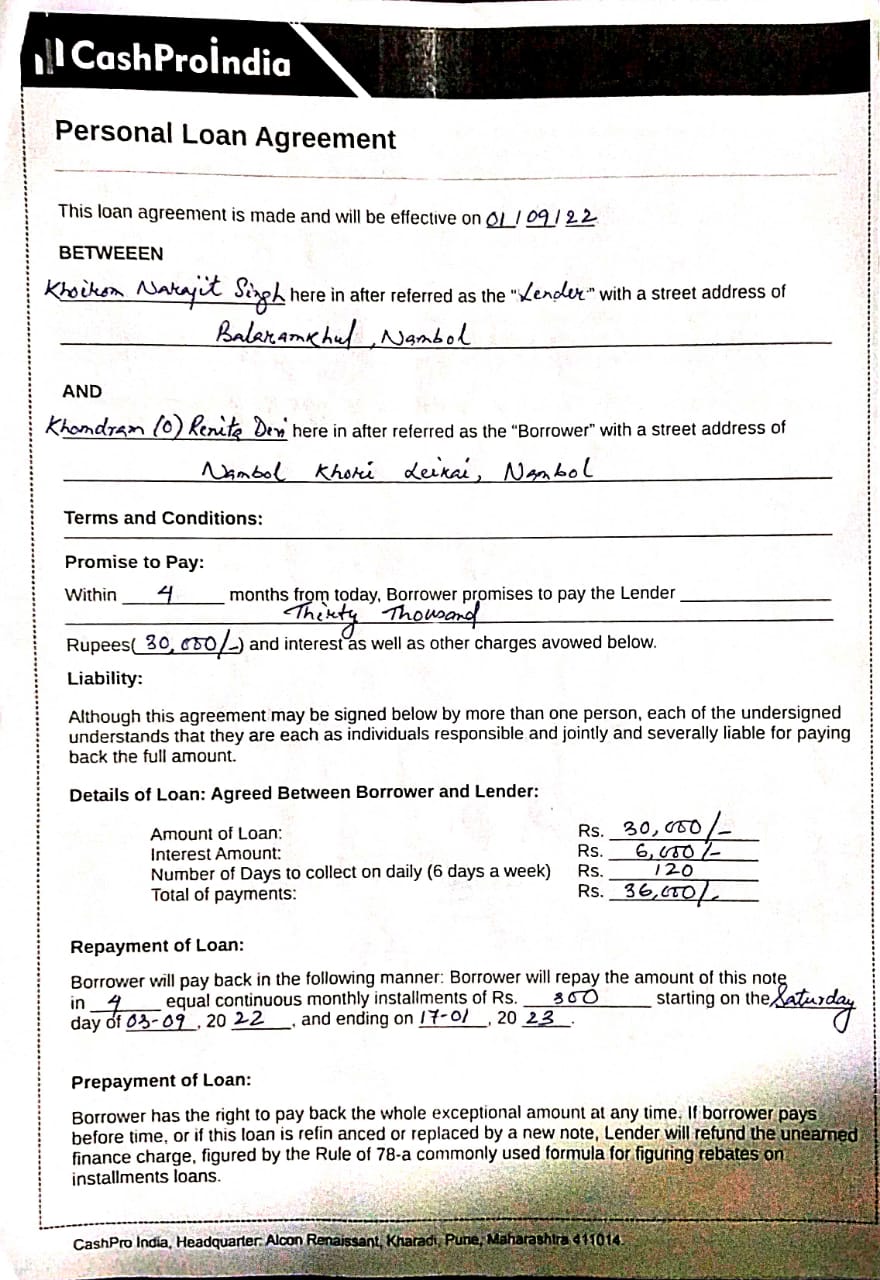 CashProIndia
Personal Loan Agreement
This loan agreement is made and will be effective on 01/09/22
BETWEEEN
Khoirom Narajit Singh here in after referred as the "Lender" with a street address of
Balaramkhul, Nambol
AND
Khomdram (O) Renita Devi here in after referred as the “Borrower” with a street address of
Nambol Khori Leikai, Nambol
Terms and Conditions:
Promise to Pay:
Within 4 months from today, Borrower promises to pay the Lender
Thirty Thousand
Rupees( 30,000/-) and interest as well as other charges avowed below.
Liability:
Although this agreement may be signed below by more than one person, each of the undersigned
understands that they are each as individuals responsible and jointly and severally liable for paying
back the full amount.
Details of Loan: Agreed Between Borrower and Lender:
Amount of Loan: Rs. 30,000/-
Interest Amount: Rs. 6,000/-
Number of Days to collect on daily (6 days a week) Rs. 120
Total of payments: Rs. 36,000/-
Repayment of Loan:
Borrower will pay back in the following manner: Borrower will repay the amount of this note
in 4 equal continuous monthly installments of Rs. 300 starting on the Saturday
day of 03-09, 20 22, and ending on 17-01, 20 23.
Prepayment of Loan:
Borrower has the right to pay back the whole exceptional amount at any time. If borrower pays
before time, or if this loan is refin anced or replaced by a new note, Lender will refund the unearned
finance charge, figured by the Rule of 78-a commonly used formula for figuring rebates on
installments loans.
CashPro India, Headquarter: Alcon Renaissant, Kharadi, Pune, Maharashtra 411014.